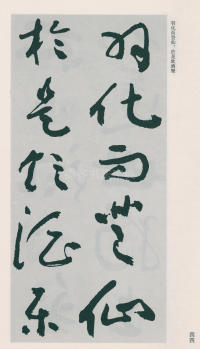 羽化而登仙
於是飲酒樂
羽化而登仙於是飲酒樂
四四